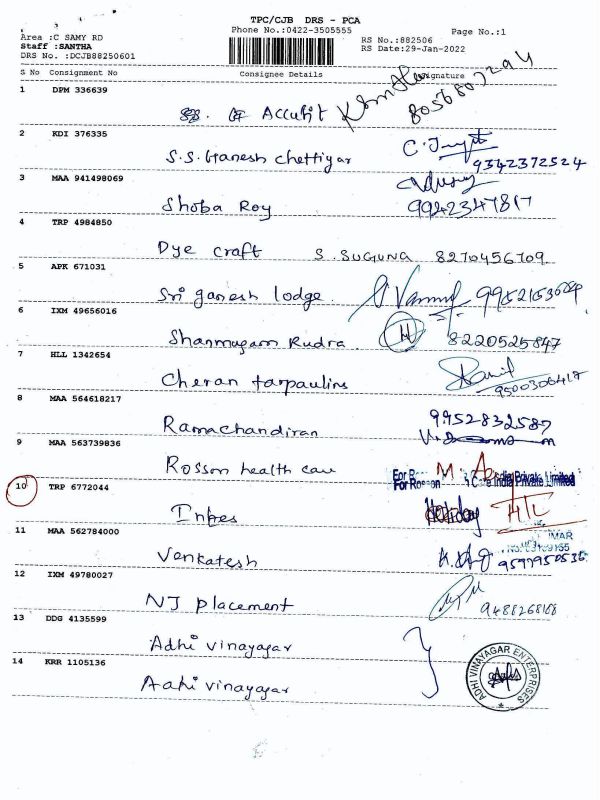 TPC/CJB DRS - PCA
Area :C SAMY RD
Phone No.:0422-3505555
Page No.:1
Staff :SANTHA
RS No.:882506
DRS No. :DCJB88250601
RS Date:29-Jan-2022
S No Consignment No Consignee Details Signature
1 DPM 336639
Accufit 8056807294
2 KDI 376335
S.S. Ganesh Chettiyar
9342372524
3 MAA 941498069
Shoba Roy 9942347817
4 TRP 4984850
Dye craft S. SUGUNA 8270456709
5 APK 671031
Sri ganesh lodge
6 IXM 49656016
Shanmugam Rudra 8220525847
7 HLL 1342654
Cheran tarpaulins 9500306417
8 MAA 564618217
Ramachandiran 9952832587
9 MAA 563739836
Rosson health care
For Rosson Care India Private Limited
10 TRP 6772044
Holiday
11 MAA 562784000
Venkatesh
12 IXM 49780027
NJ placement 9488268188
13 DDG 4135599
Adhi vinayagar
14 KRR 1105136
Aahi vinayagar
ADHI VINAYAGAR ENTERPRISES